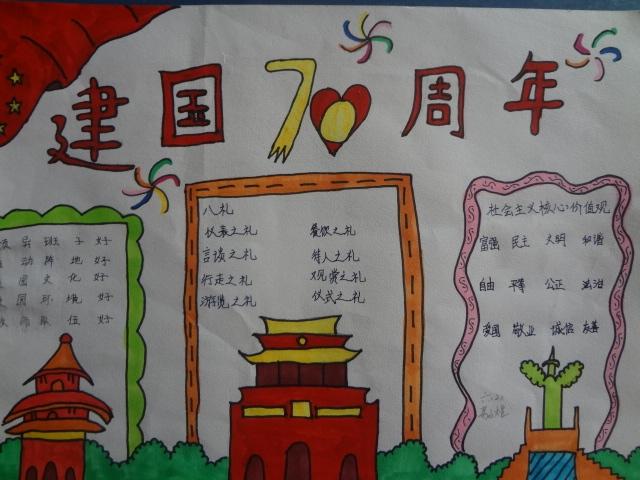 建国70周年
导班子好
动阵地好
园文化好
园环境好
师队伍好
八礼
仪表之礼 餐饮之礼
言谈之礼 待人之礼
行走之礼 观赏之礼
游览之礼 仪式之礼
社会主义核心价值观
富强 民主 文明 和谐
自由 平等 公正 法治
爱国 敬业 诚信 友善